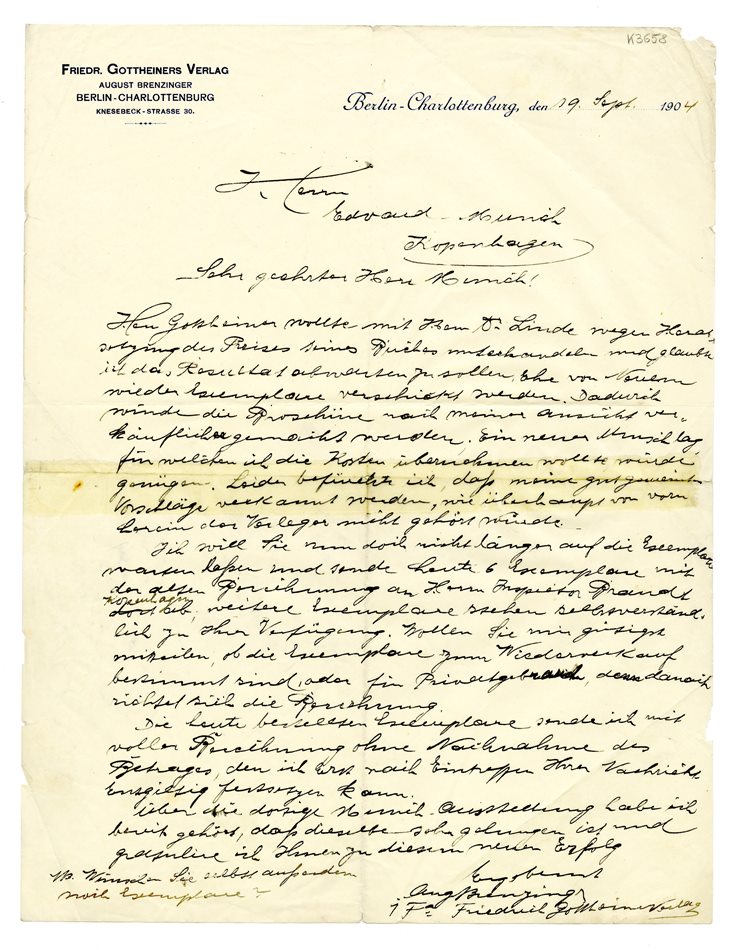 K3658
FRIEDR. GOTTHEINERS VERLAG
AUGUST BRENZINGER
BERLIN-CHARLOTTENBURG
KNESEBECK-STRASSE 30.
Berlin-Charlottenburg, den 19. Sept. 1904
Herrn
Edvard Munch
Kopenhagen
Sehr geehrter Herr Munch!
Herr Gottheiner wollte mit Herrn Dr Linde wegen Herab-
setzung des Preises seines Buches unterhandeln und glaubte
ich das Resultat abwarten zu sollen, Ehe von Neuem
wieder Exemplare verschickt werden. Dadurch
würde die Broschüre nach meiner ansicht ver-
käuflicher gemacht werden. Ein neuer Umschlag
für welchen ich die Kosten übernehmen wollte würde
genügen. Leider befürchte ich, daß meine gutgemeinten
Vorschläge verkannt werden, wie überhaupt von vorn
herein der Verleger nicht gehört wurde.
Ich will Sie nun doch nicht länger auf die Exemplare
warten laßen und sende heute 6 Exemplare mit
der alten Berechnung an Herrn Inspector Brandt
Kopenhagen
ab, weitere Exemplare stehen selbstverständ-
lich zu Ihrer Verfügung. Wollen Sie mir gütigst
mitteilen, ob die Exemplare zum Wiederverkauf
bestimmt sind, oder für Privatgebrauch, denn danach
richtet sich die Berechnung.
Die heute bestellten Exemplare sende ich mit
voller Berechnung ohne Nachnahme des
Betrages, den ich Erst nach Eintreffen Ihrer Nachricht
Entgiltig festsetzen kann.
Über die dortige Munch-Ausstellung habe ich
bereit gehört, daß dieselbe sehr gelungen ist und
gratulire ich Ihnen zu diesem neuen Erfolg
Ergebenst
Aug Brenzinger
i Fa Friedrich Gottheiner Verlag
NB. Wünschen Sie selbst außerdem
noch Exemplare?